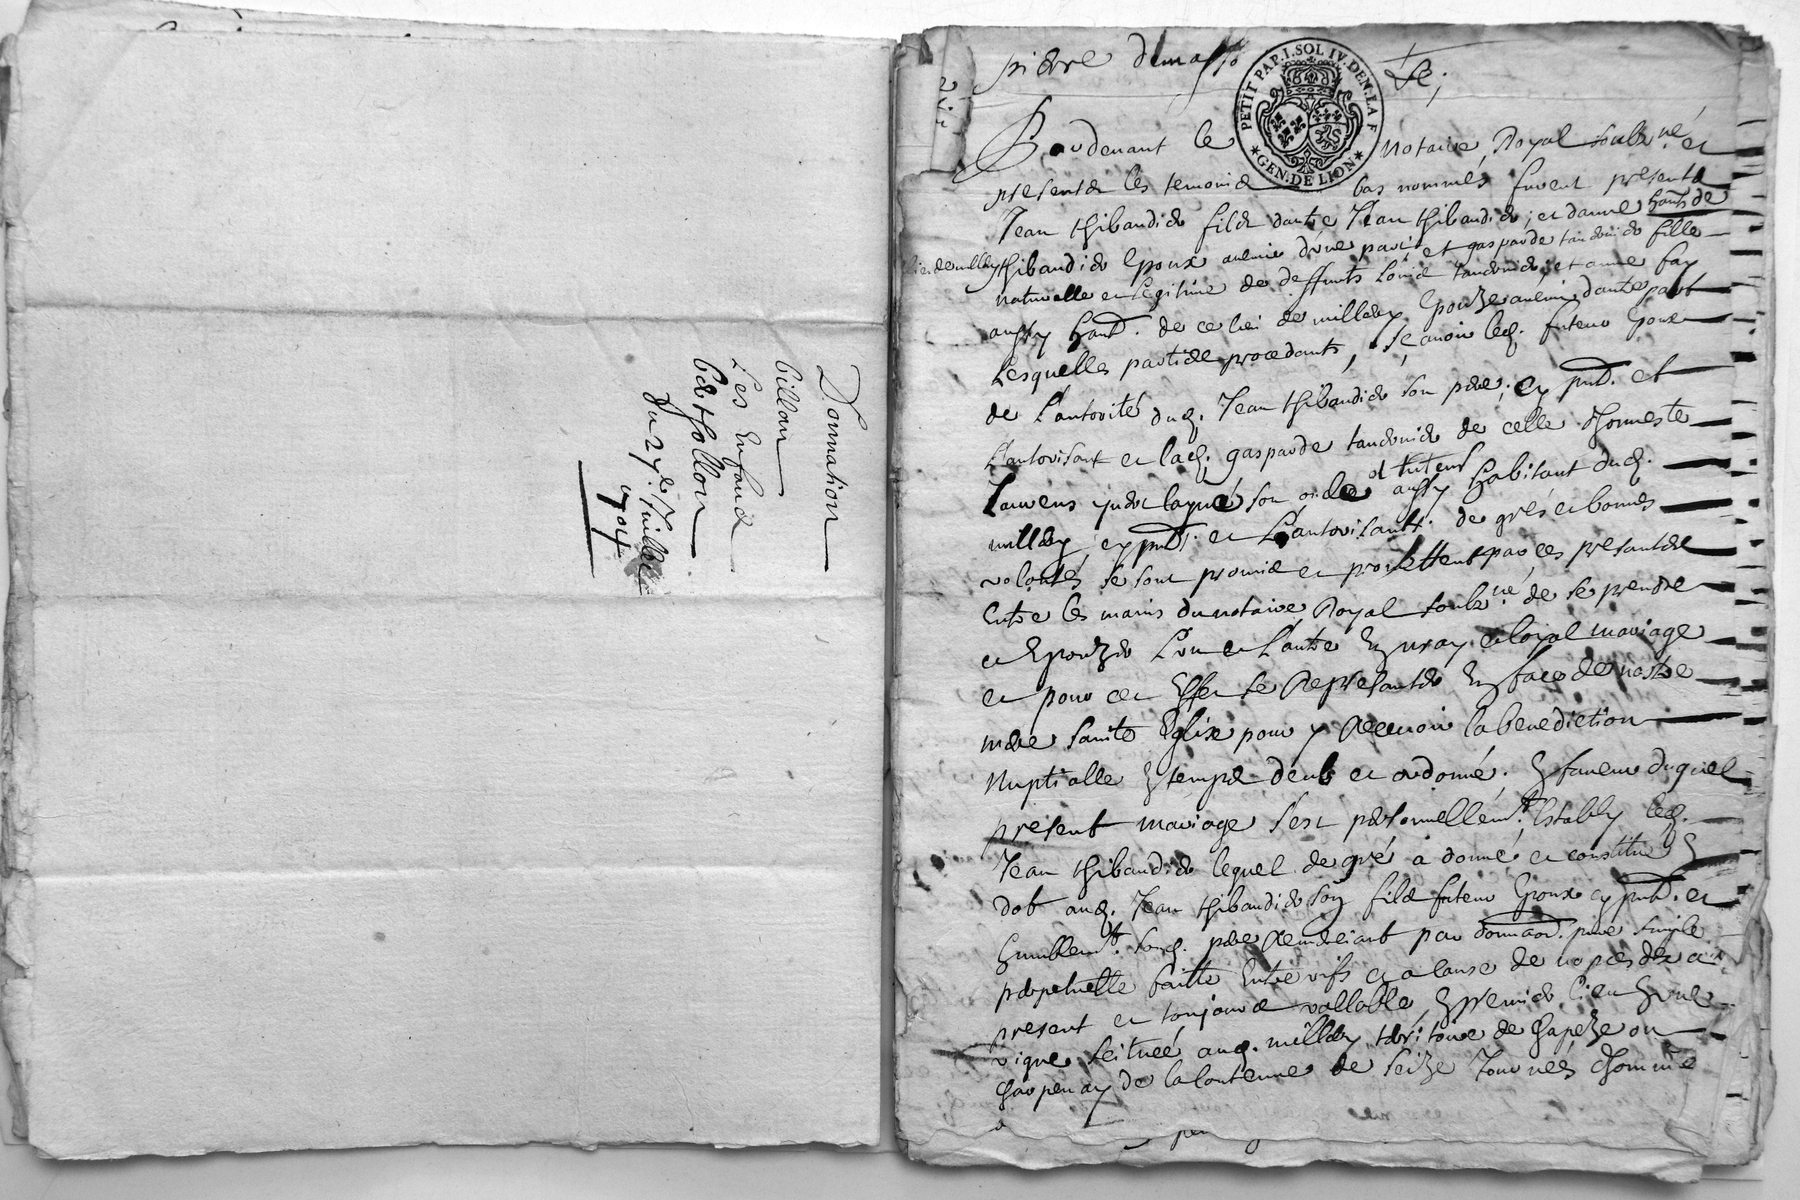 Donnation
billon
Les Enfans
Berthollon
Du 27e Juillet
1704
pierre
PETIT PAP. I. SOL IV. DEN. LA F
GEN. DE LION
Pardevant le Notaire Royal soubzné et
presents les temoins bas nommés furent presents
Jean thibaudier fils d'autre Jean thibaudier, et danne
thibaudier Epoux avenir d'une part et gasparde fille
naturelle et legitime de deffunts et anne fay
aussy hant. de ce lieu de millery Epouze avenir d'autre part
Lesquelles parties procedants, sçavoir led. futeur Epoux
de L'autorité dud. Jean thibaudier son pere, cy pnt. et
L'autorisant et lad. gasparde de celle d'honneste
Laurens son et tuteur aussy habitant dud.
millery cy pnt. et L'autorisant. de grés et bonnes
volontés se sont promis et promettent par ces presantes
Entre les mains du notaire Royal soubzné de se prendre
et Epouzer L'un et L'autre En vray et loyal mariage
et pour cet Effet se Represanter En face de nostre
mere sainte Eglize pour y Recevoir la benediction
Nuptialle En temps deub et ordonné, En faveur duquel
present mariage s'est personnellemt. Estably led.
Jean thibaudier lequel de gré a donné et constitué En
dot aud. Jean thibaudier son fils futeur Epoux cy pnt. et
humblemt. sond. pere Remerciant par donnaon. pure simple
perpetuelle faitte Entre vifs et a cause de nopces des a
present et toujours vallable, En premier lieu Une
vigne scituée aud. millery territoire de ou
de la contenue de seize Journés d'homme